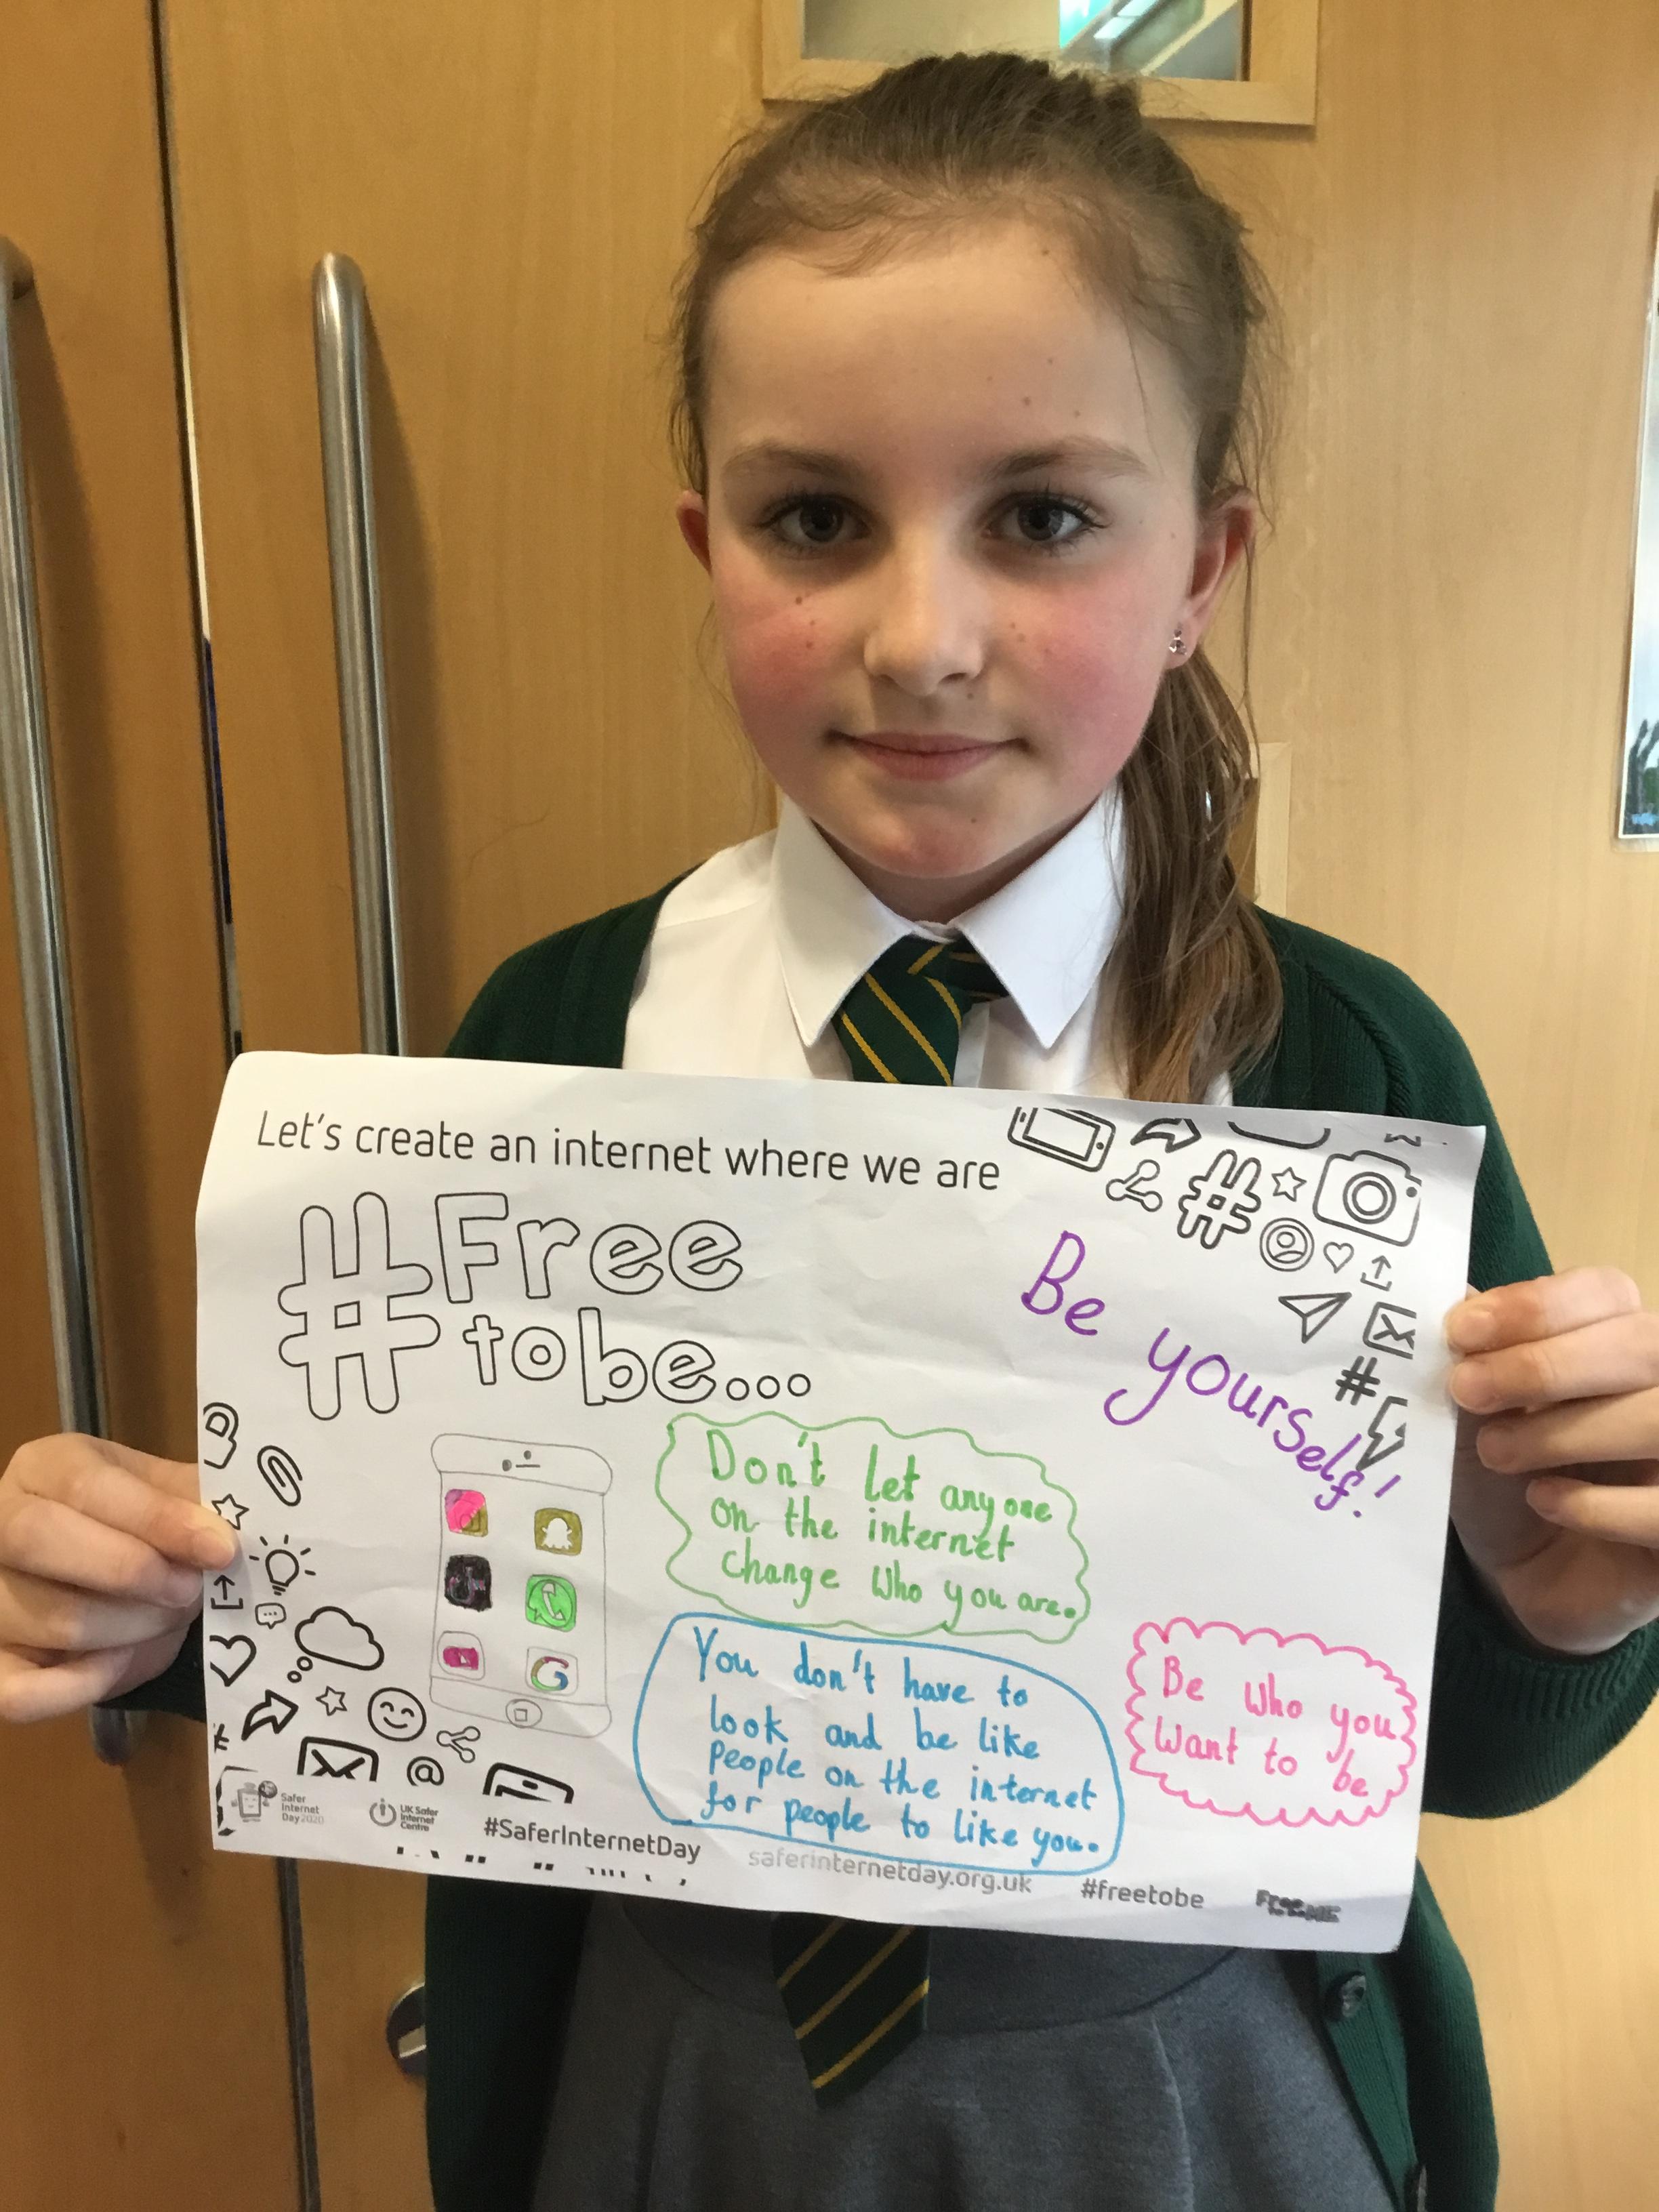 Let's create an internet where we are
#Free
to be...
Be yourself!
Don't let anyone
on the internet
change who you are.
You don't have to
look and be like
people on the internet
for people to like you.
Be who you
want to be
Safer
Internet
Day 2020
UK Safer
Internet
Centre
#SaferInternetDay
saferinternetday.org.uk
#freetobe